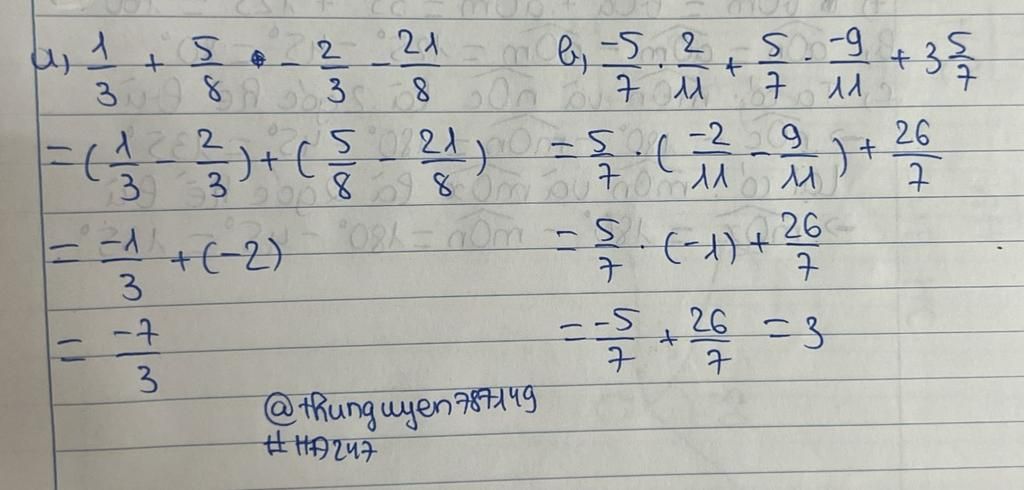 a, 1/3 + 5/8 - 2/3 - 21/8
= (1/3 - 2/3) + (5/8 - 21/8)
= -1/3 + (-2)
= -7/3
b, -5/7 . 2/11 + 5/7 . -9/11 + 3 5/7
= 5/7 . (-2/11 - 9/11) + 26/7
= 5/7 . (-1) + 26/7
= -5/7 + 26/7 = 3
@thunguyen787149